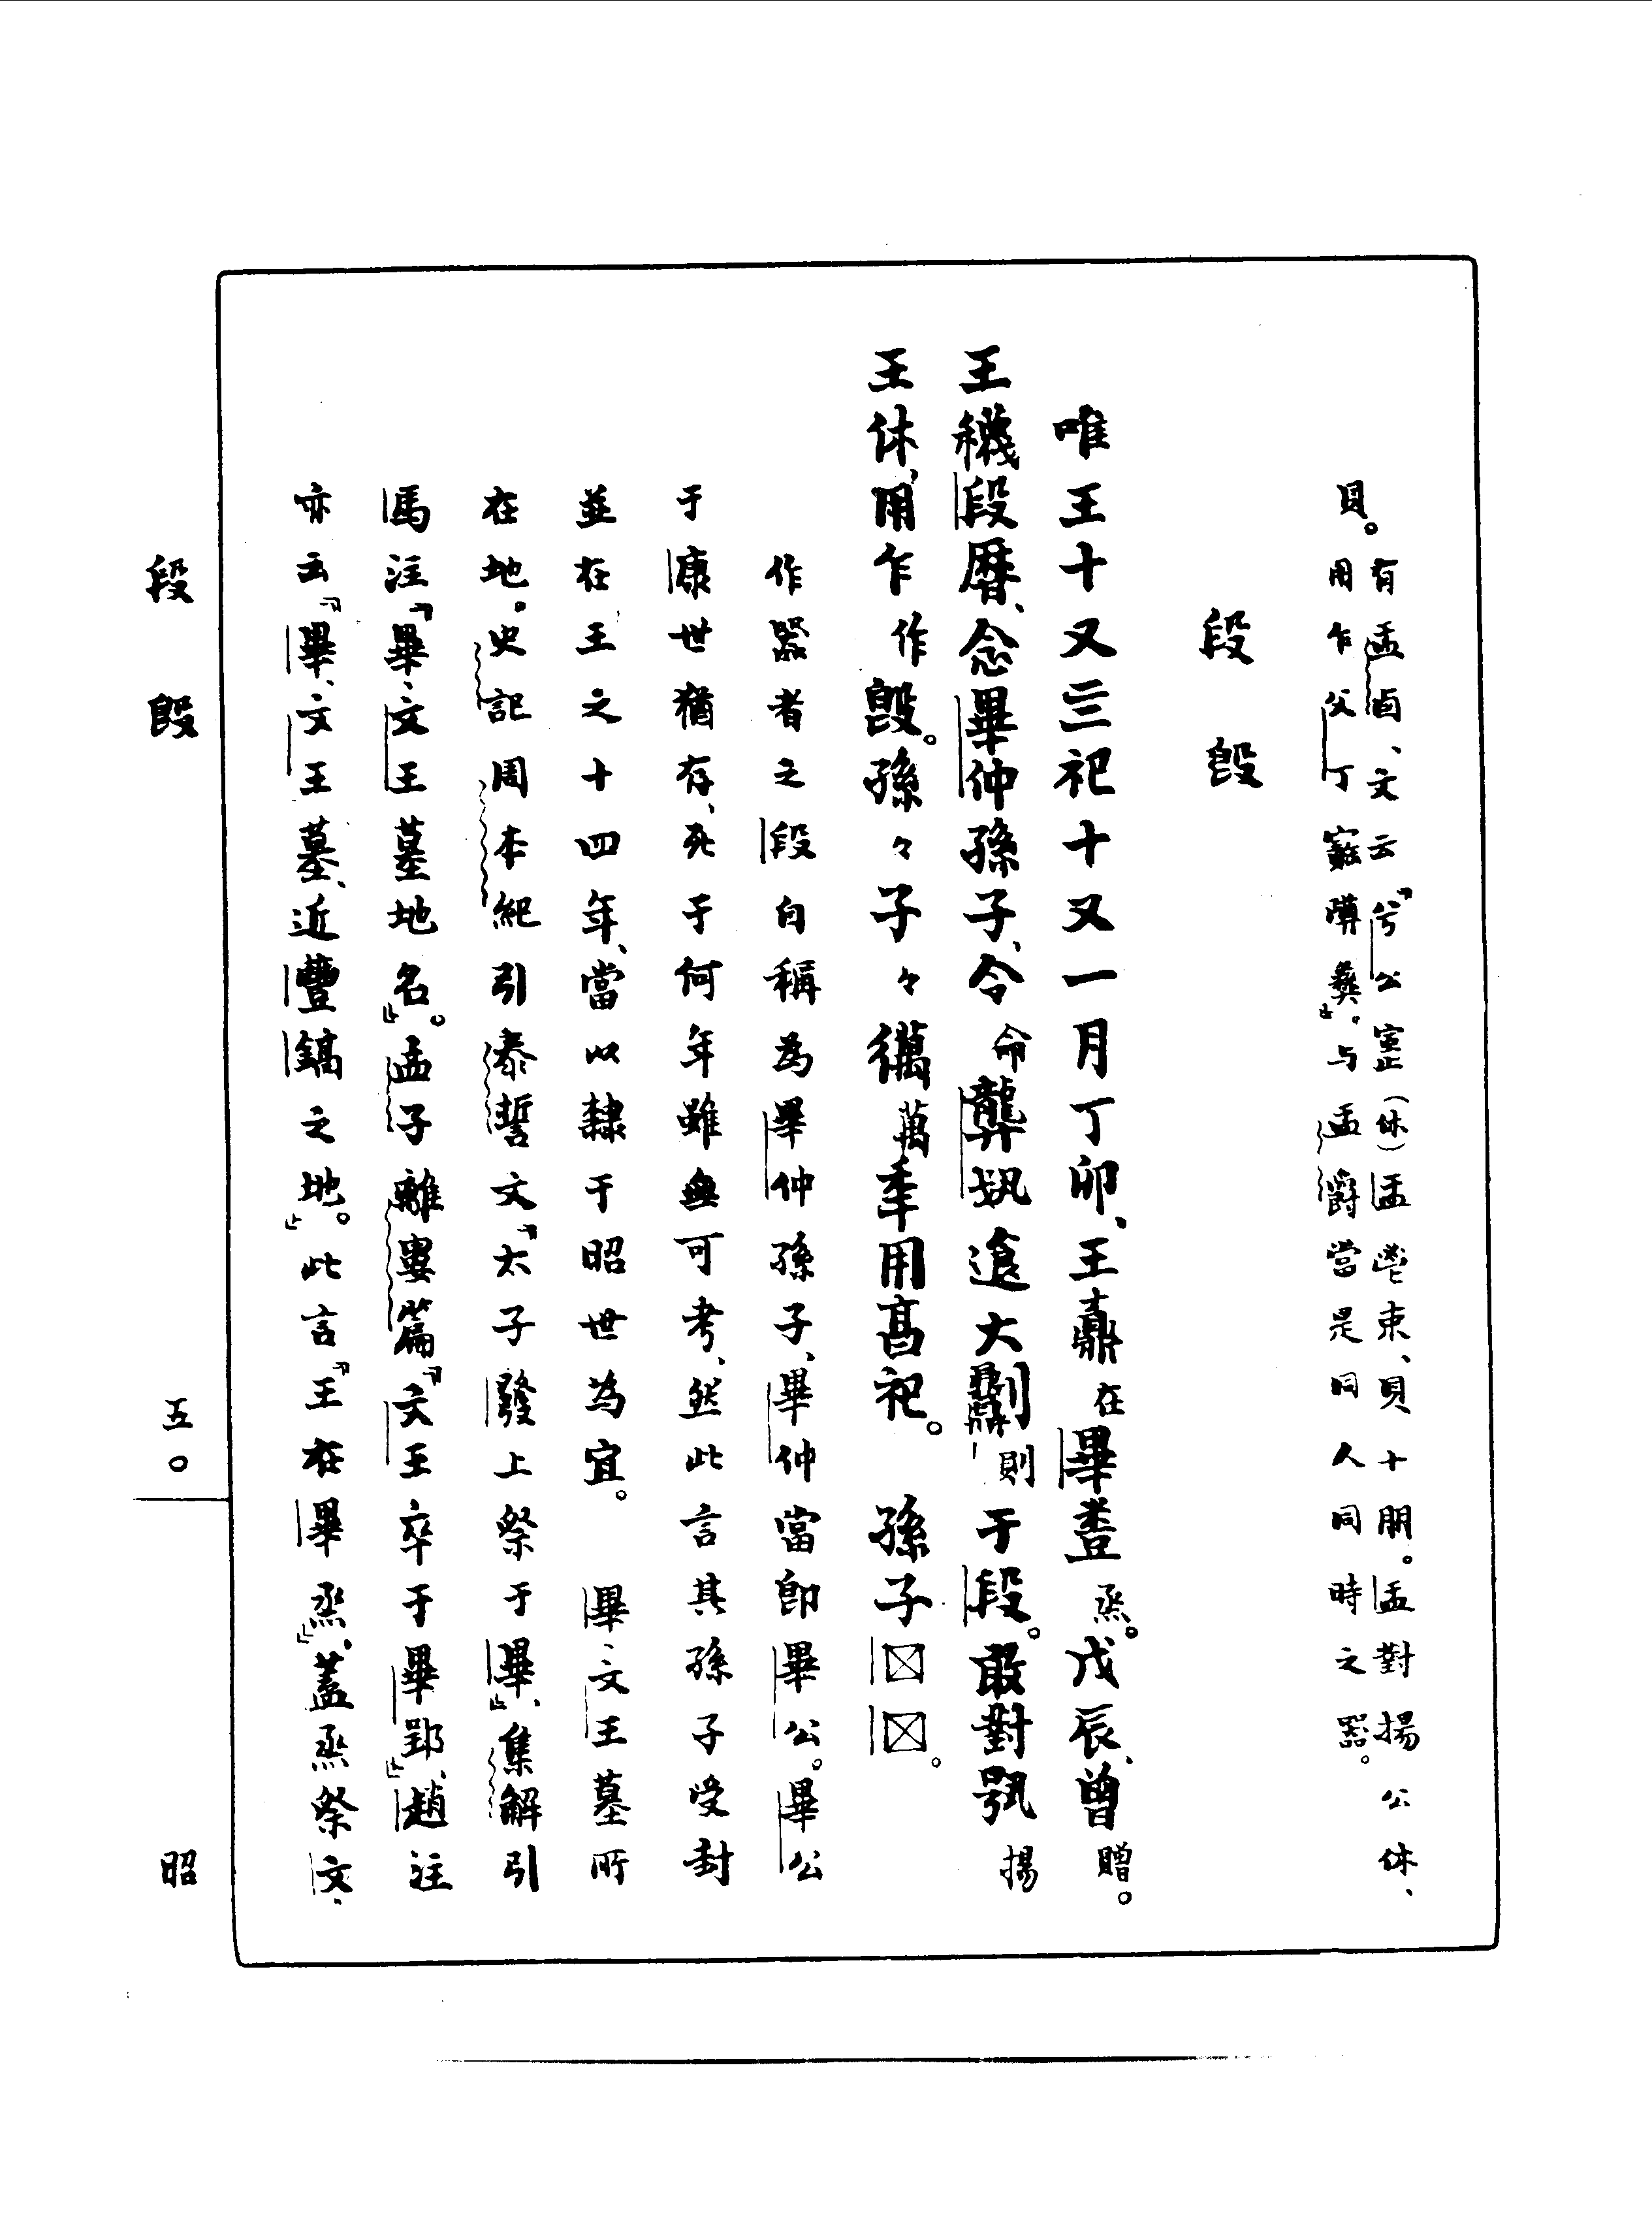 有盂卣、文云『兮公室（休）盂鬯束、貝十朋。盂對揚公休、
貝。用乍父丁彝』。与盂爵當是同人同時之器。
段𣪘
唯王十又三祀十又一月丁卯、王鼒在畢登烝。戊辰、曾贈。
王穖段曆、念畢仲孫子、令命龏𡚬遺大則于段。敢對揚
王休、用乍作𣪘。孫々子々萬年用亯祀。孫子☒☒。
作器者之段自稱為畢仲孫子、畢仲當即畢公。畢公
于康世猶存、死于何年雖無可考、然此言其孫子受封
並在王之十四年、當以隸于昭世為宜。 畢、文王墓所
在地。史記周本紀引泰誓文『太子發上祭于畢』、集解引
馬注『畢、文王墓地名』。孟子離婁篇『文王卒于畢郢』、趙注
亦云『畢、文王墓、近豐鎬之地』。此言『王在畢烝』、蓋烝祭文、
段𣪘
五〇
昭